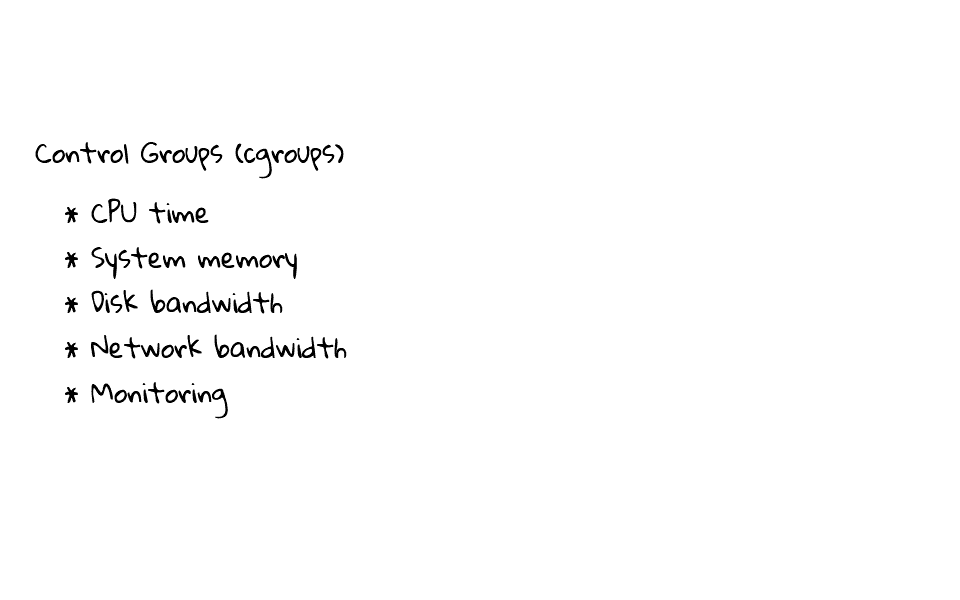 Control Groups (cgroups)
* CPU time
* System memory
* Disk bandwidth
* Network bandwidth
* Monitoring